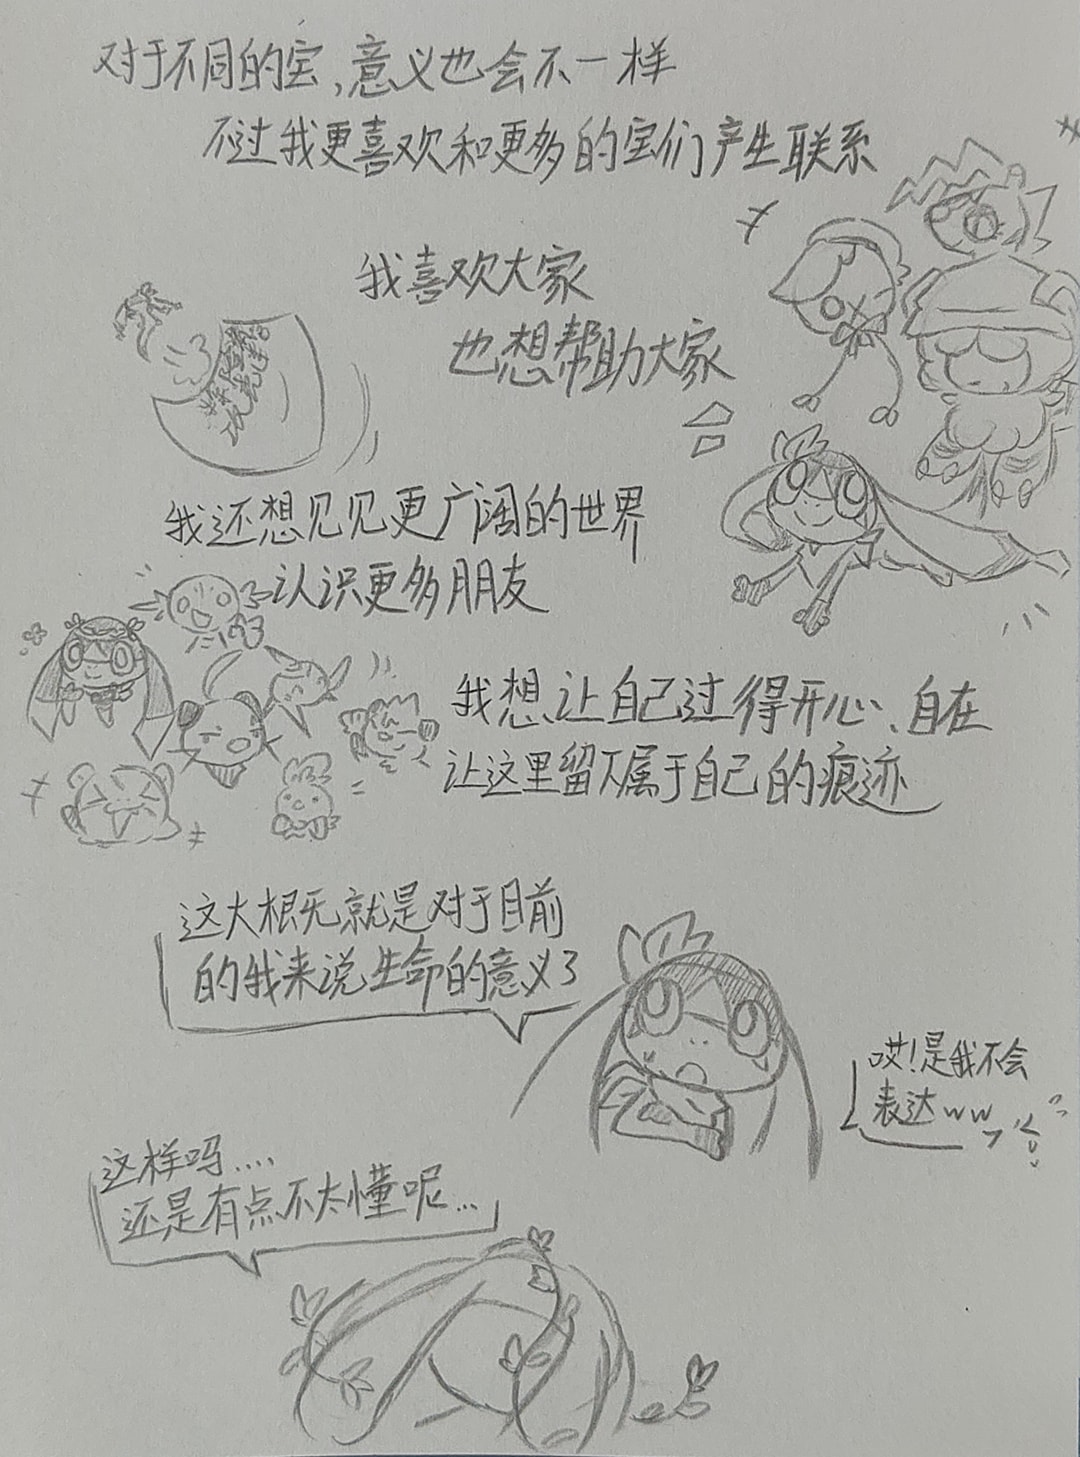 对于不同的宝,意义也会不一样
不过我更喜欢和更多的宝们产生联系
我喜欢大家
也想帮助大家
我还想见见更广阔的世界
认识更多朋友
我想让自己过得开心、自在
让这里留下属于自己的痕迹
这大根无就是对于目前
的我来说生命的意义了
哎!是我不会
表达ww
这样吗....
还是有点不太懂呢...